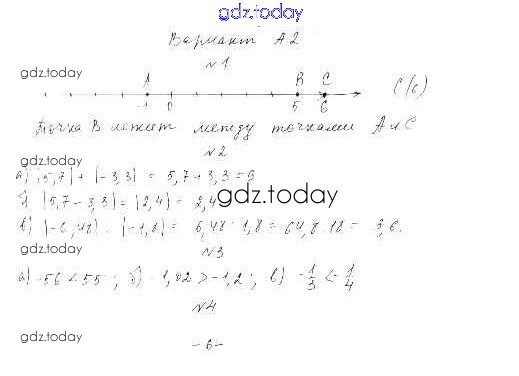 gdz.today
Вариант А2
№1
gdz.today
А В С
-1 0 5 6 С(6)
Точка В лежит между точками А и С
№2
gdz.today
а) |5,7| + |-3,3| = 5,7 + 3,3 = 9
б) |5,7 - 3,3| = |2,4| = 2,4
gdz.today
в) |-6,48| : |-1,8| = 6,48 : 1,8 = 64,8 : 18 = 3,6.
gdz.today
№3
а) -56 < 55; б) -1,02 > -1,2; в) -1/3 < -1/4
№4
gdz.today
-6-